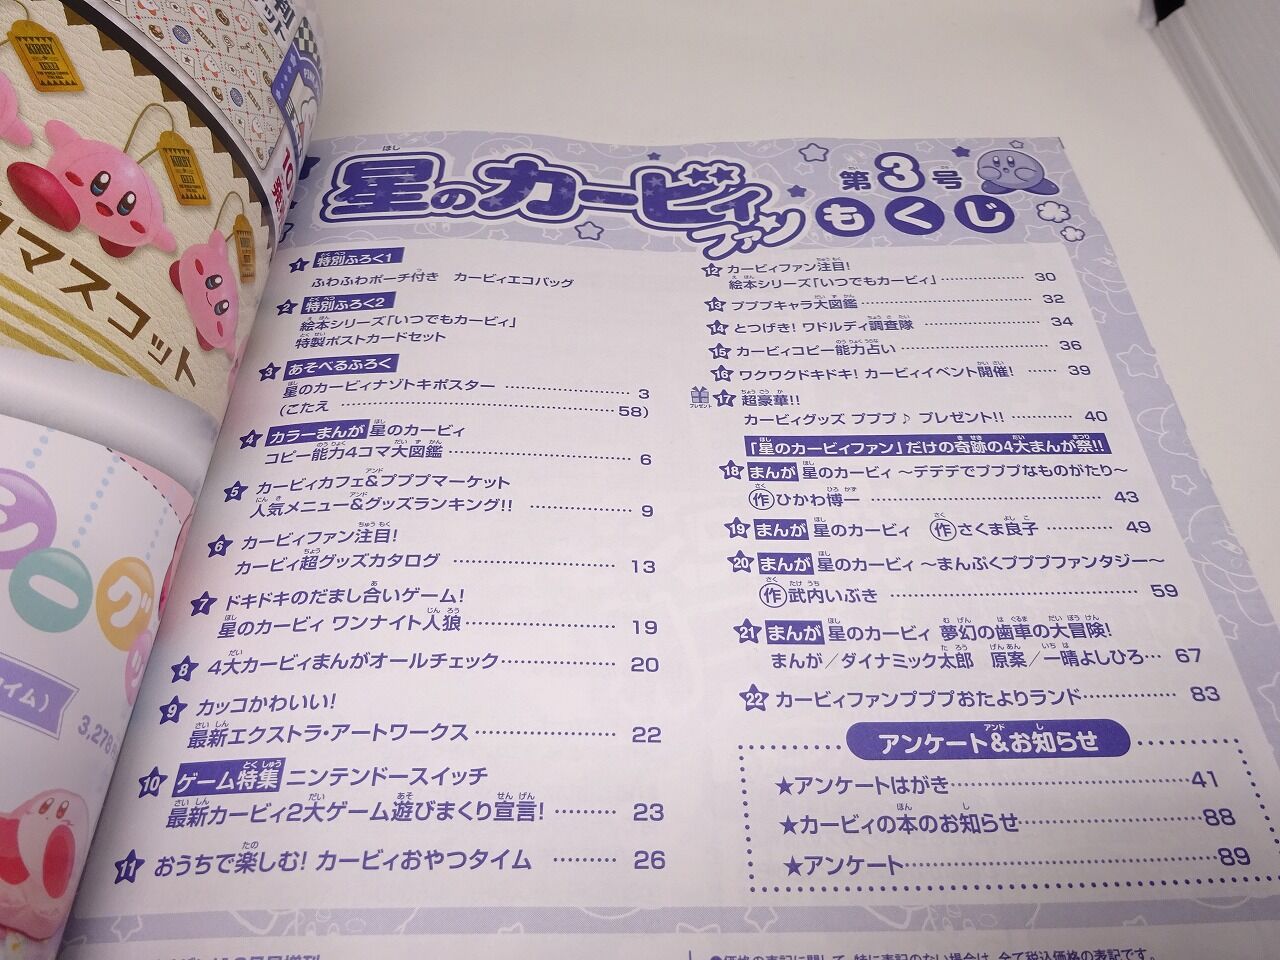 KIRBY
KIRBY
クマスコット
3,278
星のカービィファン
第3号
もくじ
1 特別ふろく1
ふわふわポーチ付き カービィエコバッグ
2 特別ふろく2
絵本シリーズ「いつでもカービィ」
特製ポストカードセット
3 あそべるふろく
星のカービィナゾトキポスター …… 3
(こたえ …… 58)
4 カラーまんが 星のカービィ
コピー能力4コマ大図鑑 …… 6
5 カービィカフェ&プププマーケット
人気メニュー&グッズランキング!! …… 9
6 カービィファン注目!
カービィ超グッズカタログ …… 13
7 ドキドキのだまし合いゲーム!
星のカービィ ワンナイト人狼 …… 19
8 4大カービィまんがオールチェック …… 20
9 カッコかわいい!
最新エクストラ・アートワークス …… 22
10 ゲーム特集 ニンテンドースイッチ
最新カービィ2大ゲーム遊びまくり宣言! …… 23
11 おうちで楽しむ! カービィおやつタイム …… 26
12 カービィファン注目!
絵本シリーズ「いつでもカービィ」 …… 30
13 プププキャラ大図鑑 …… 32
14 とつげき! ワドルディ調査隊 …… 34
15 カービィコピー能力占い …… 36
16 ワクワクドキドキ! カービィイベント開催! …… 39
プレゼント
17 超豪華!!
カービィグッズ プププ♪ プレゼント!! …… 40
「星のカービィファン」だけの奇跡の4大まんが祭!!
18 まんが 星のカービィ ～デデデでプププなものがたり～
作 ひかわ博一 …… 43
19 まんが 星のカービィ 作 さくま良子 …… 49
20 まんが 星のカービィ ～まんぷくプププファンタジー～
作 武内いぶき …… 59
21 まんが 星のカービィ 夢幻の歯車の大冒険!
まんが／ダイナミック太郎 原案／一晴よしひろ … 67
22 カービィファンプププおたよりランド …… 83
アンケート&お知らせ
★アンケートはがき …… 41
★カービィの本のお知らせ …… 88
★アンケート …… 89
●価格の表記に関して、特に表記のない場合は、全て税込価格の表記です。